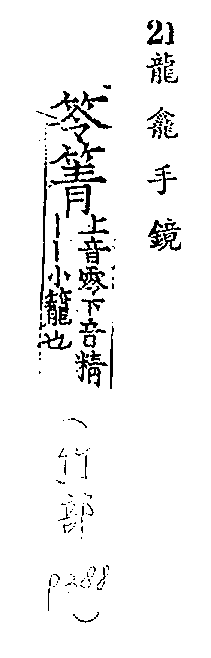 21 龍龕手鏡
笭箐
上音零下音精
丨丨小籠也
(竹部
p.288)